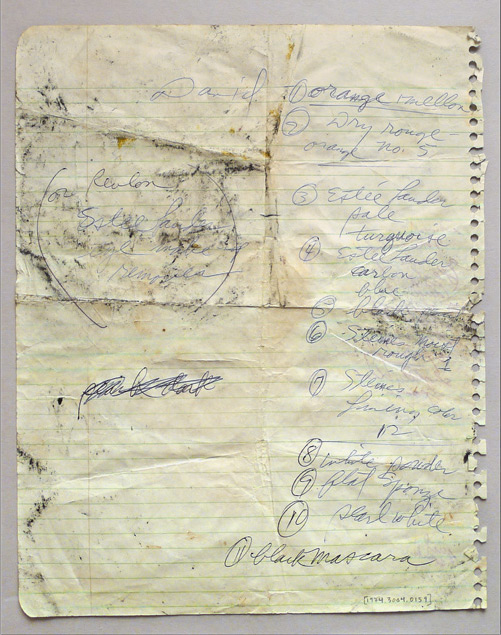 David
① orange mellon
② Dry rouge -
orange no. 5
(or Revlon
Estée Lauder
remover)
③ Estée Lauder
pale
turquoise
④ Estée Lauder
carbon
blue
⑤ black
⑥ Steines moist
rouge 1
⑦ Steines
lining color
12
⑧ white powder
⑨ flat sponge
⑩ pearl white
⑪ black mascara
[1974.3004.0159]